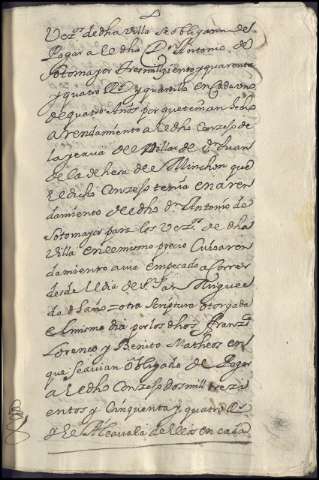 Vezos de dha villa se obligaron del
Pagar a le dho Dn Antonio de
Sotomayor tres mil ciento y quarenta
y quatro Rs y quartillo en Cada uno
de quatro Años por que temian dicho
Arrendamiento a le dho Conzejo de
la yeavia del Millar de Sn Juan
de la dehesa de el Minchon que
el dicho Conzejo tenia en aren
damiento de el dho Dn Antonio de
Sotomayor para los Vezos de dha
Villa en el mismo precio Cuio aren
damiento avia empezado a Correr
desde el dia de Sn
de dho Año y otra Scriptura otorgada
el mismo dia por los dhos Franco
Lorenco y Benito Matheos en
que se avian obligado de Pagar
a le dho Conzejo dos mill treszi
entos y Cinquenta y quatro Rs
y el Alcavala de ellos en cada